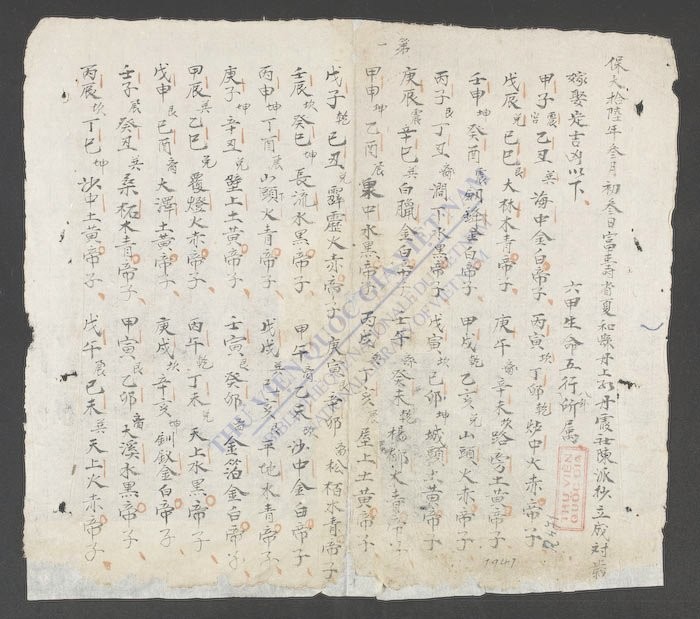 保大拾陸年叁月初叁日富壽省夏和縣丹上丹霞社陳派抄立成
嫁娶定吉凶以下
六甲生命五行所屬
甲子震乙丑巽海中金白帝子 丙寅坎丁卯乾炉中火赤帝子
戊辰兑己巳艮大林木青帝子 庚午辛未坎路旁土黄帝子
壬申坤癸酉震劍鋒金白帝子 甲戌乾乙亥兑山頭火赤帝子
丙子艮丁丑澗下水黑帝子 戊寅坎己卯坤城頭土黄帝子
庚辰震辛巳巽白臘金白帝子 壬午癸未乾楊柳木青帝子
第一
甲申坤乙酉震泉中水黑帝子 丙戌丁亥屋上土黄帝子
戊子乾己丑兑霹靂火赤帝子 庚寅辛卯松栢木青帝子
壬辰坎癸巳坤長流水黑帝子 甲午乙未坎沙中金白帝子
丙申坤丁酉震山頭火青帝子 戊戌己亥平地木青帝子
庚子坤辛丑兑壁上土黄帝子 壬寅艮癸卯金箔金白帝子
甲辰巽乙巳兑覆燈火赤帝子 丙午乾丁未兑天上水黑帝子
戊申艮己酉大澤土黄帝子 庚戌坎辛亥坤釧釵金白帝子
壬子震癸丑巽桑柘木青帝子 甲寅乙卯大溪水黑帝子
丙辰坎丁巳坤沙中土黄帝子 戊午己未巽天上火赤帝子
THƯ VIỆN QUỐC GIA
1947
THƯ VIỆN QUỐC GIA VIỆT NAM
BIBLIOTHÈQUE NATIONALE DU VIETNAM
NATIONAL LIBRARY OF VIETNAM